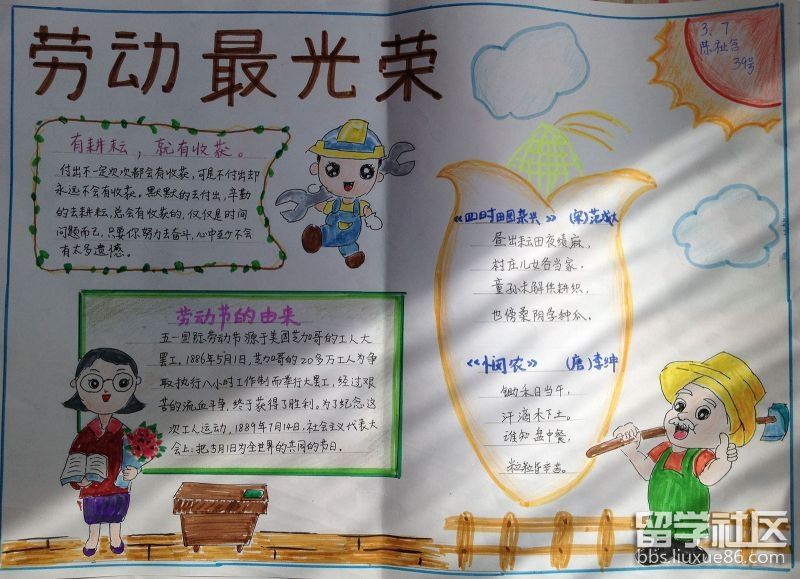 劳动最光荣
3.7
陈祉含
39号
有耕耘，就有收获。
付出不一定次次都会有收获，可是不付出却
永远不会有收获。默默的去付出，辛勤
的去耕耘，总会有收获的，仅仅是时间
问题而已，只要你努力去奋斗，心中至少不会
有太多遗憾。
劳动节的由来
五一国际劳动节源于美国芝加哥的工人大
罢工。1886年5月1日，芝加哥的20多万工人为争
取执行八小时工作制而举行大罢工，经过艰
苦的流血斗争，终于获得了胜利。为了纪念这
次工人运动，1889年7月14日，社会主义代表大
会上：把5月1日为全世界的共同的节日。
《四时田园杂兴》（宋）范成大
昼出耘田夜绩麻，
村庄儿女各当家。
童孙未解供耕织，
也傍桑阴学种瓜。
《悯农》（唐）李绅
锄禾日当午，
汗滴禾下土。
谁知盘中餐，
粒粒皆辛苦。
留学社区
bbs.liuxue86.com